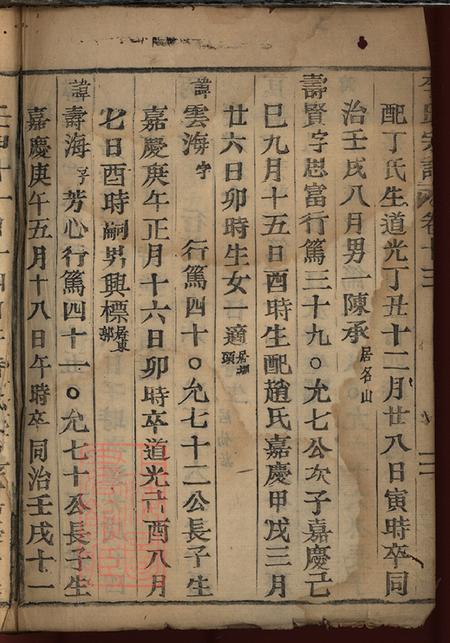 李氏宗譜 卷十三
配丁氏生道光丁丑十二月廿八日寅時卒同
治壬戌八月男一陳承居名山
壽賢字思富行篤三十九○允七公次子嘉慶己
巳九月十五日酉時生配趙氏嘉慶甲戌三月
廿六日卯時生女一適
諱雲海字 行篤四十○允七十二公長子生
嘉慶庚午正月十六日卯時卒道光己酉八月
七日酉時嗣男興標居東郭
諱壽海字芳心行篤四十一○允七十公長子生
嘉慶庚午五月十八日午時卒同治壬戌十一